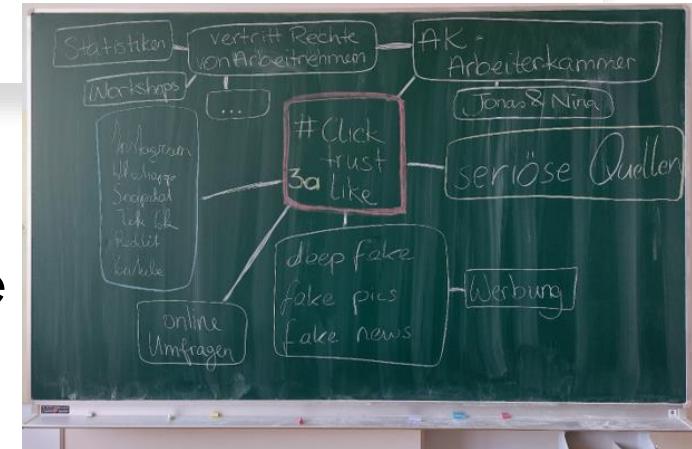 Statistiken
vertritt Rechte
von Arbeitnehmen
AK -
Arbeiterkammer
Workshops
...
Jonas & Nina
# Click
trust
3a like
seriöse Quellen
Instagram
Whatsapp
Snapchat
Tik Tok
Reddit
Youtube
deep fake
fake pics
fake news
Werbung
online
Umfragen
e